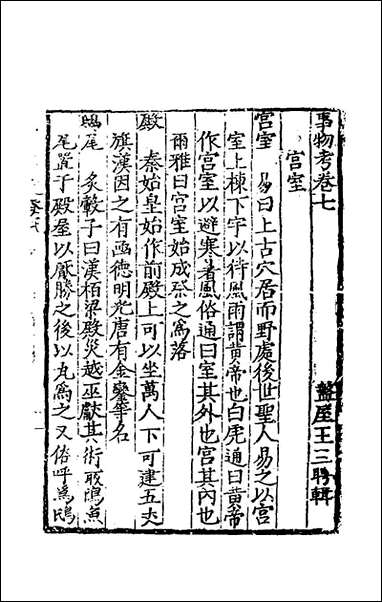 事物考卷七
盩厔王三聘輯
宫室
宫室 易曰上古穴居而野處後世聖人易之以宫
室上棟下宇以待風雨謂黄帝也白虎通曰黄帝
作宫室以避寒暑風俗通曰室其外也宫其内也
爾雅曰宫室始成祭之為落
殿 秦始皇始作前殿上可以坐萬人下可建五丈
旗漢因之有函德明光唐有金鑾等名
鴟尾 炙轂子曰漢栢梁殿災越巫獻其術取鴟魚
尾置于殿屋以厭勝之後以瓦為之又俗呼為鴟